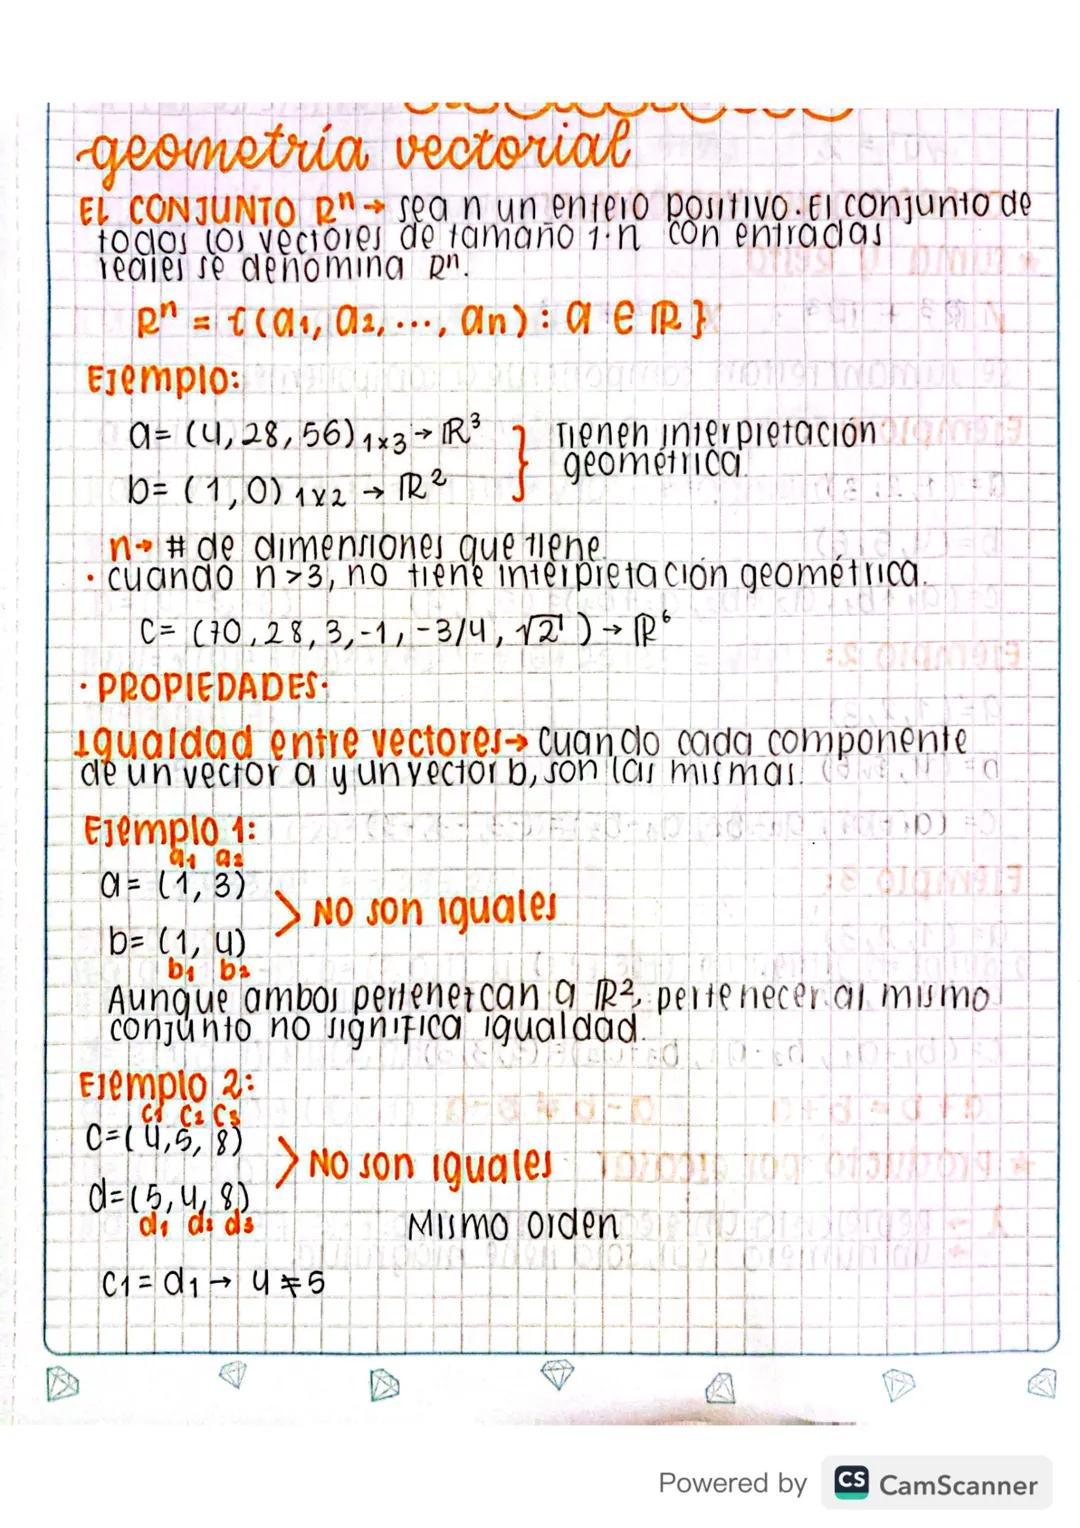 geometría vectorial
EL CONJUNTO Rⁿ → sea n un entero positivo. El conjunto de
todos los vectores de tamaño 1·n con entradas
reales se denomina Rⁿ.
Rⁿ = {(a1, a2, ..., an) : a ∈ ℝ}
Ejemplo:
a= (4, 28, 56) 1x3 → ℝ³
Tienen interpretación
geométrica.
b= (1, 0) 1x2 → ℝ²
n→ # de dimensiones que tiene.
· cuando n>3, no tiene interpretación geométrica.
C= (70, 28, 3, -1, -3/4, √2) → ℝ⁶
· PROPIEDADES·
Igualdad entre vectores → Cuando cada componente
de un vector a y un vector b, son las mismas.
Ejemplo 1:
a1 a2
a= (1, 3)
> NO son iguales
b= (1, 4)
b1 b2
Aunque ambos pertenezcan a ℝ², pertenecer al mismo
conjunto no significa igualdad.
Ejemplo 2:
C1 C2 C3
C=(4,5,8)
> NO son iguales
d=(5,4,8)
d1 d2 d3
Mismo orden
C1 = d1 → 4 ≠ 5
Powered by CS CamScanner